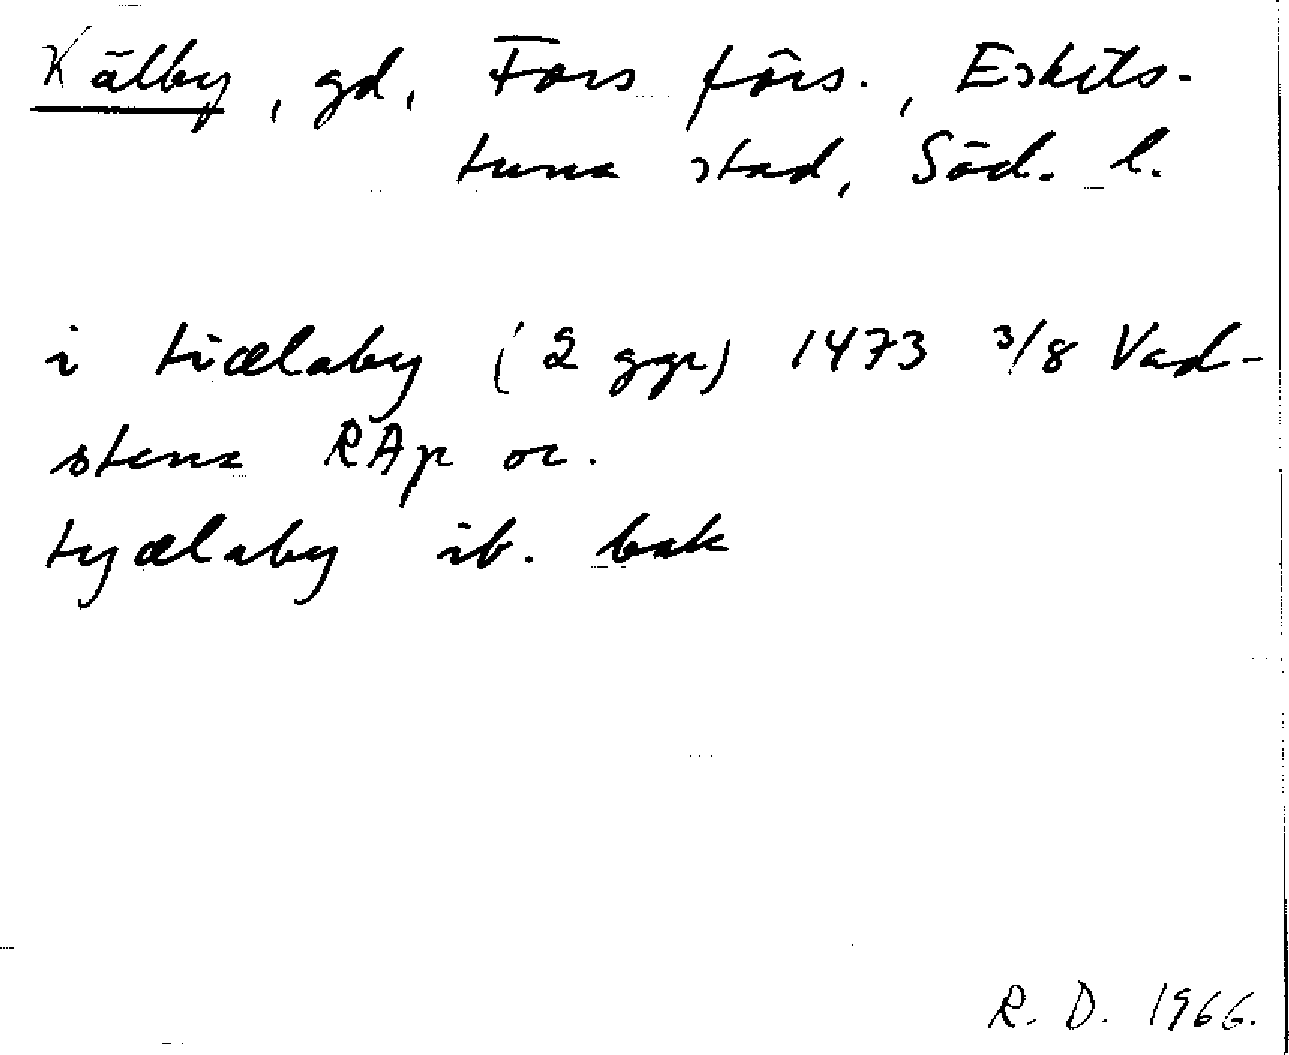 Kälby, gd, Fors förs., Eskils-
tuna stad, Söd. l.
i tiælaby (2 ggr) 1473 3/8 Vad-
stena RAp or.
tyælaby ib. bak
R. D. 1966.